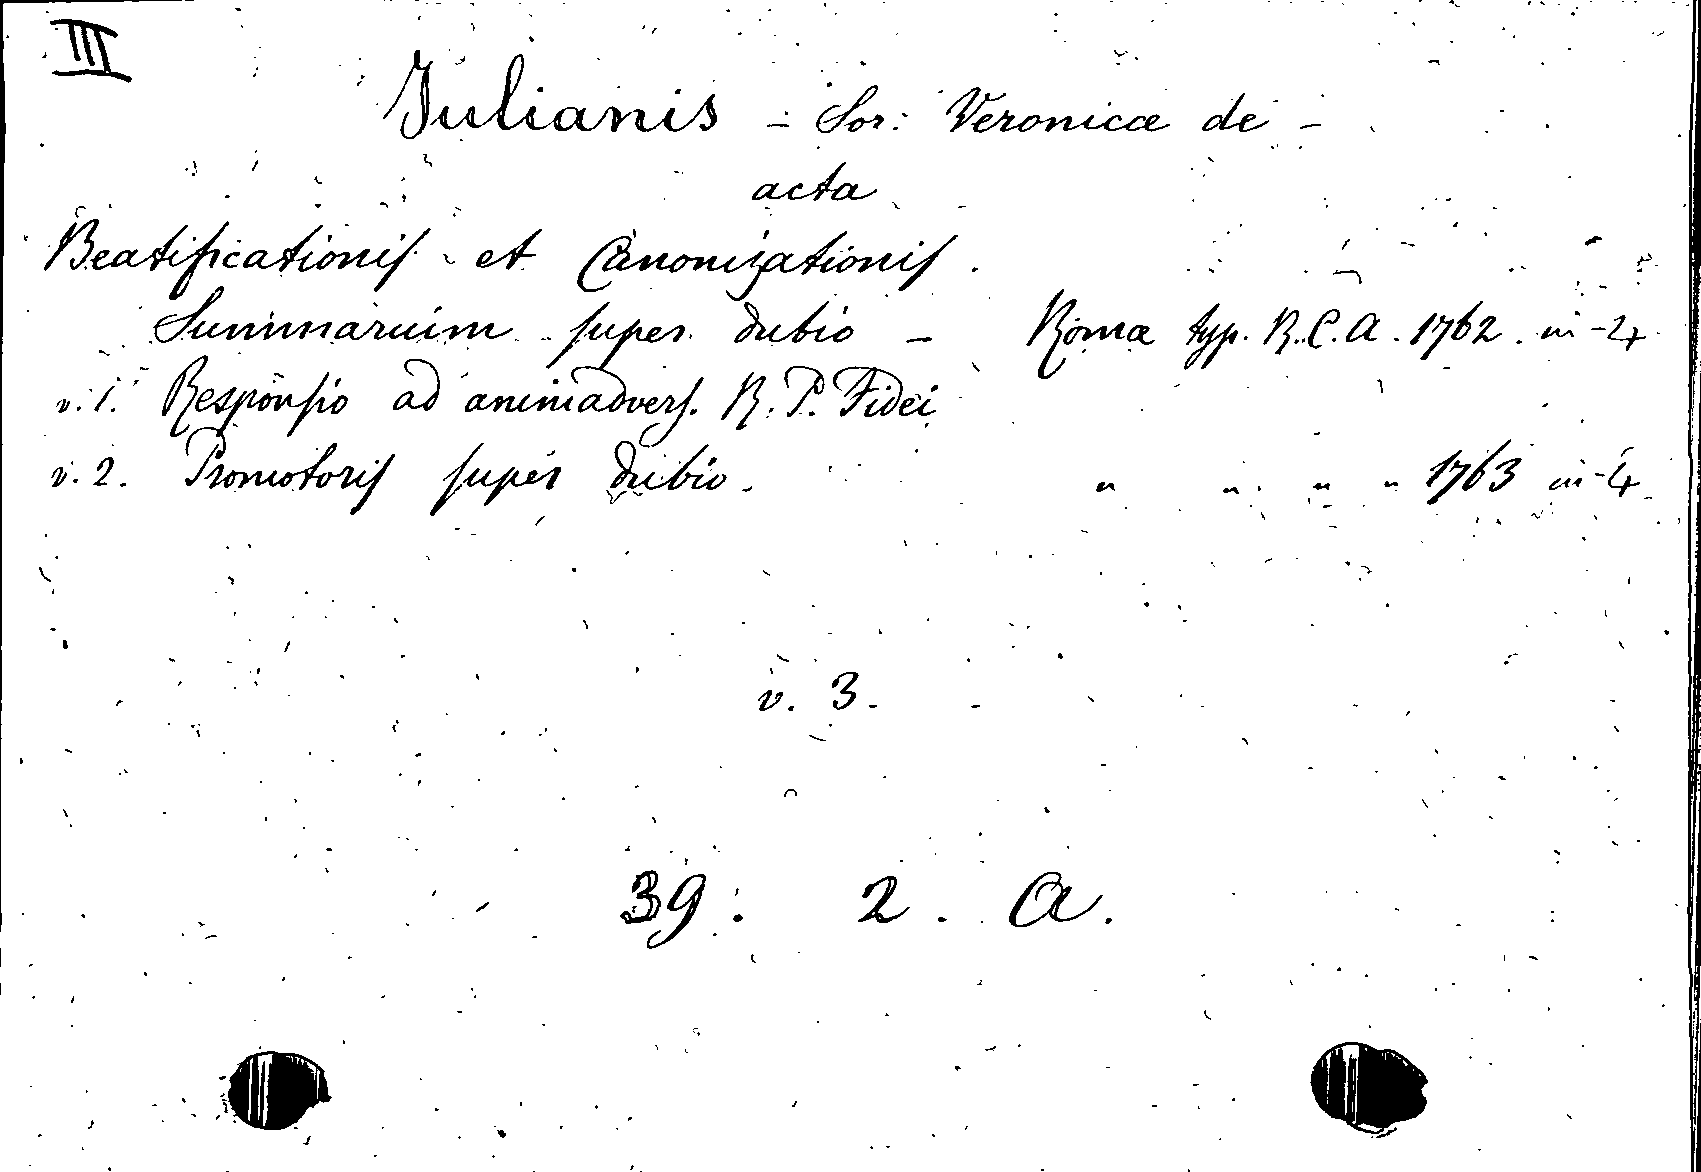 III
Julianis - Sor: Veronicæ de -
acta
Beatificationis et Canonizationis.
Summarium super dubio - Romæ typ. R.C.A. 1762. in-4
v.1. Responsio ad animadvers. R. P. Fidei
v.2. Promotoris super dubio. " " " " 1763 in-4
v. 3.
39. 2. A.